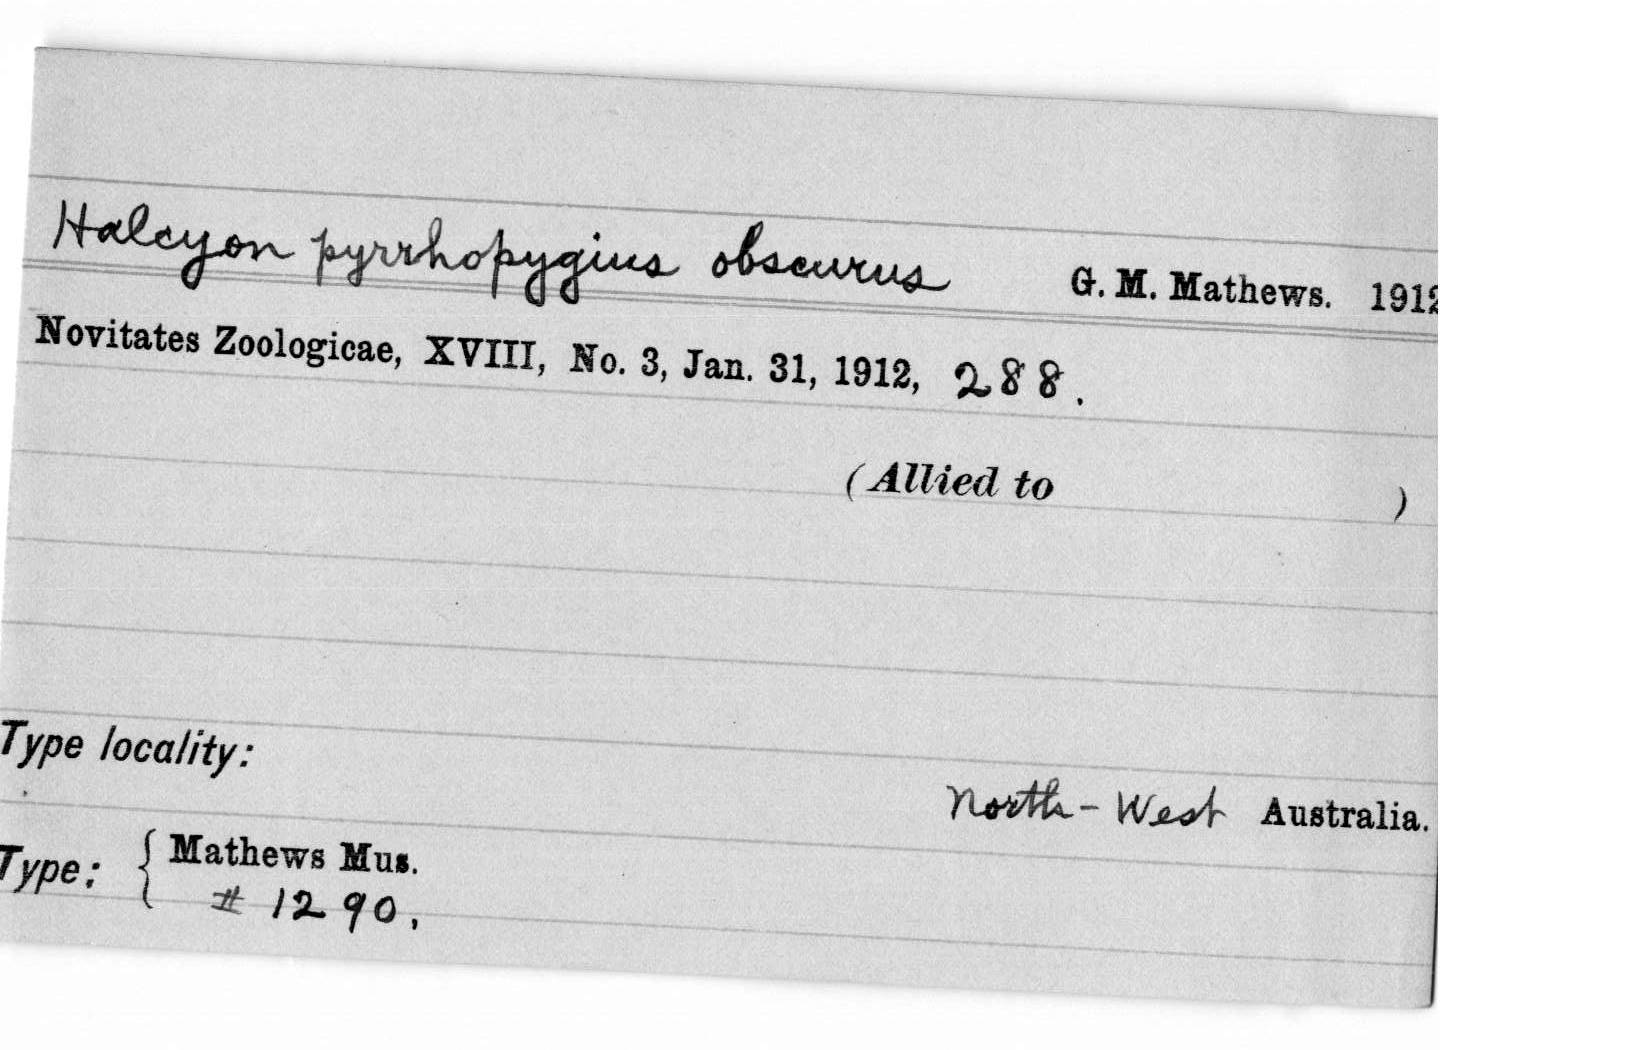 Halcyon pyrrhopygius obscurus G. M. Mathews. 1912
Novitates Zoologicae, XVIII, No. 3, Jan. 31, 1912, 288.
(Allied to )
Type locality:
North-West Australia.
Type: { Mathews Mus.
# 1290.